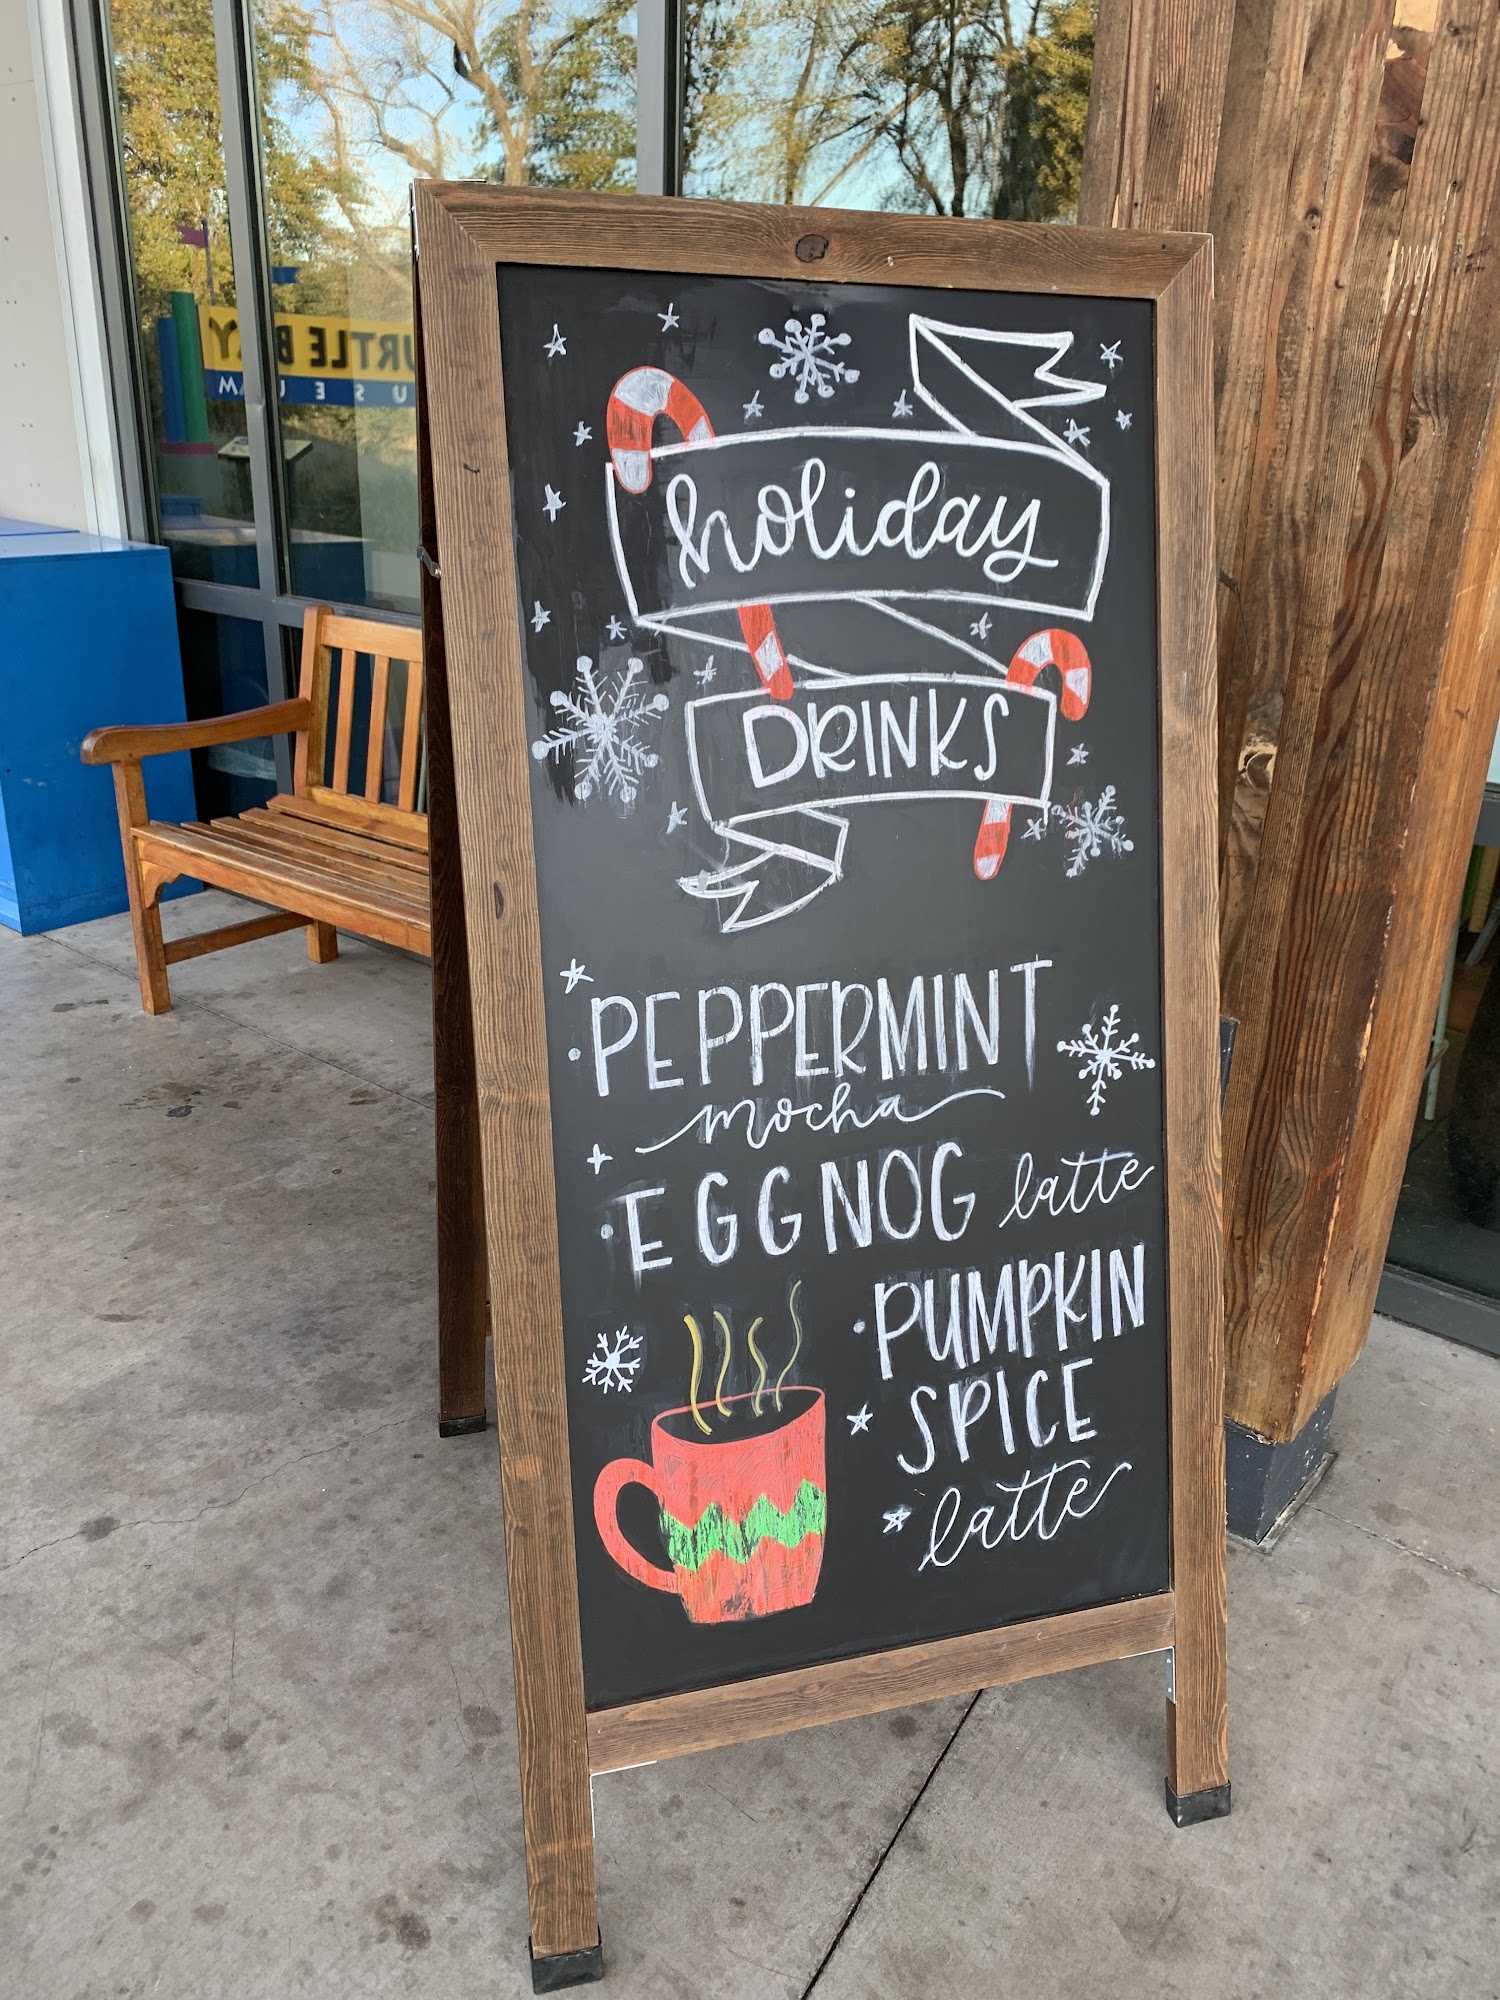 holiday
DRINKS
·PEPPERMINT
mocha
·EGGNOG latte
·PUMPKIN
SPICE
latte